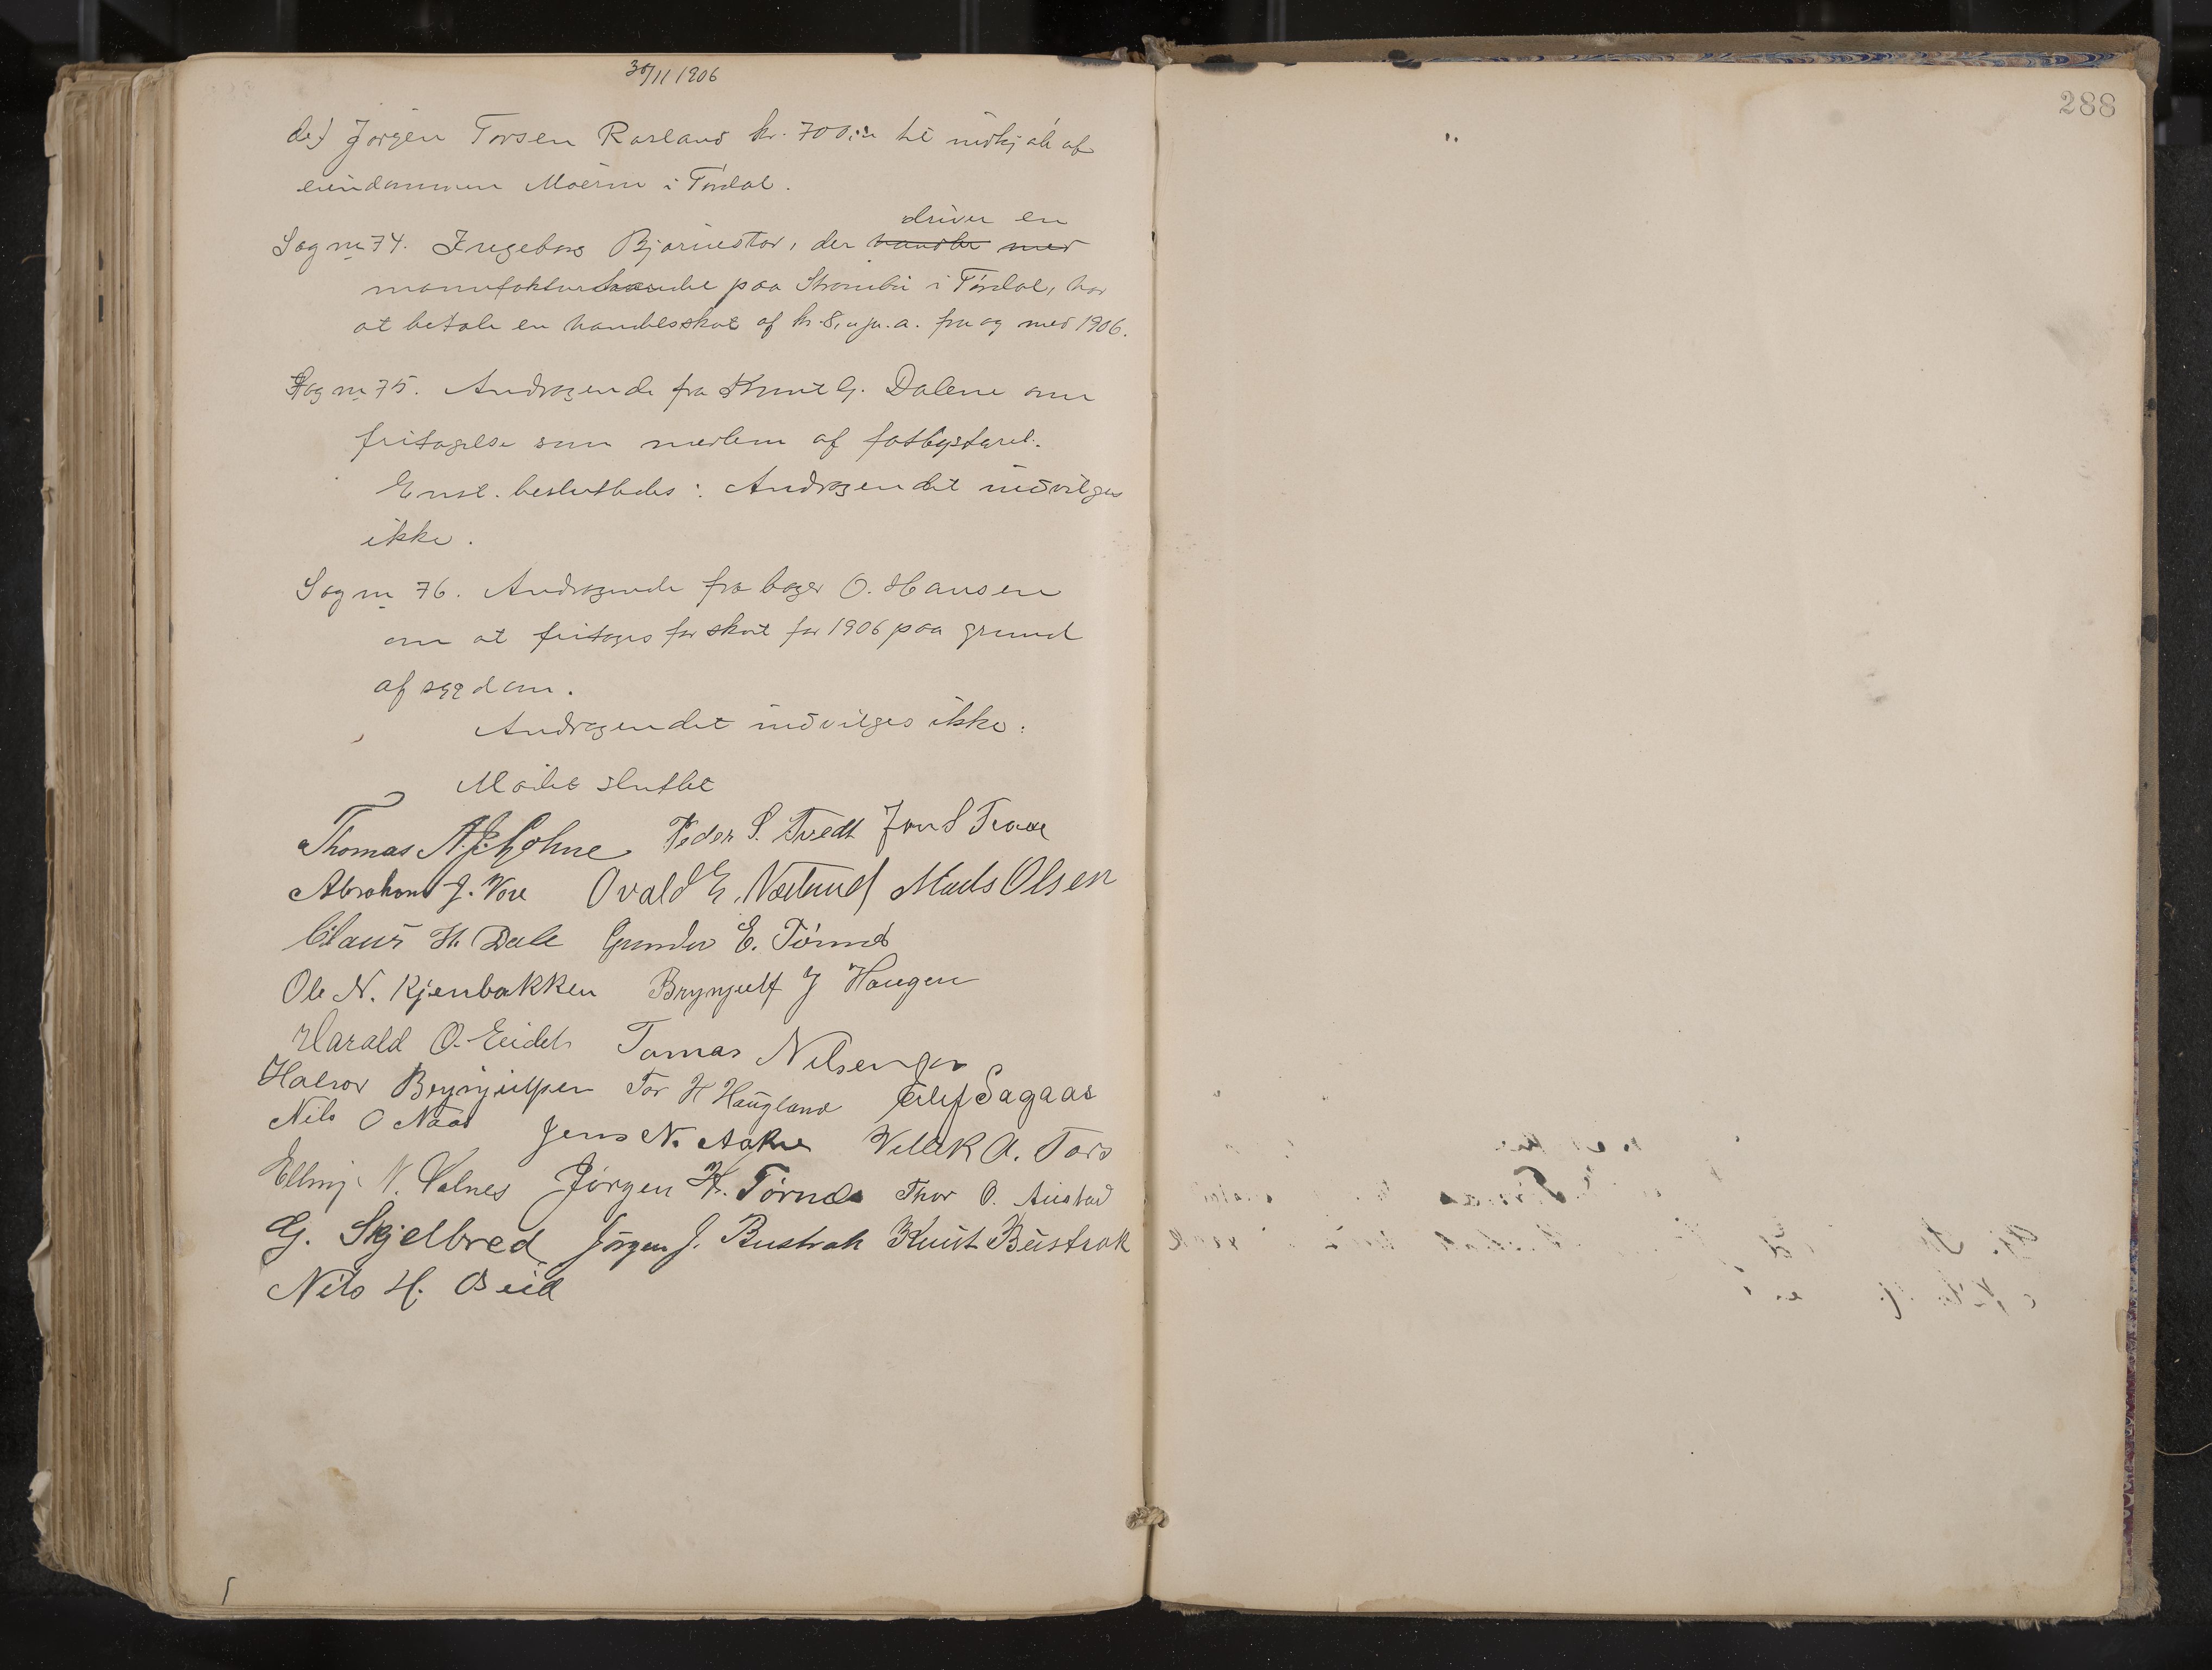 30/11 1906
288
de) Jørgen Torsen Rorland kr. 700,00 til indkjøb af
eiendommen Moen i Tørdal.
driver en
Sag nr 74. Ingeborg Bjørnestor, der handler med
manufakturhandel paa Strombu i Tørdal, har
at betale en handelsskat af kr. 8,00 pr. a. fra og med 1906.
Sag nr 75. Andragende fra Knut G. Dalene om
fritagelse som medlem af fattigstyrel.
Enst. besluttedes: Andragendet indvilges
ikke.
Sag nr 76. Andragende fra bager O. Hansen
om at fritages for skat for 1906 paa grund
af sygdom.
Andragendet indvilges ikke.
Mødet sluttet
Thomas A. Lohne Peder S. Tvedt Jon S
Abraham J. Vore Ovald E. Mads Olsen
Claus H. Dale Gunder E. Tørnes
Ole N. Kjenbakken Brynjulf J Haugen
Harald O. Eidet Tomas Nilsen
Halvor Brynjulfsen Tor H Haugland Eilef Sagaas
Nils O Naas Jens N. Aakre A. Tors
Elling N. Valnes Jørgen H. Tørnes Thor O. Austad
G. Skjelbred Jørgen J. Bustrak Knut Bustrak
Nils H. Beid